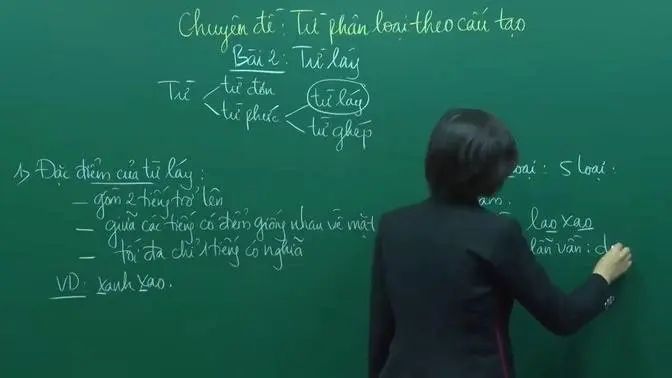 Chuyên đề: Từ phân loại theo cấu tạo
Bài 2: Từ láy
Từ
từ đơn
từ phức
từ láy
từ ghép
1) Đặc điểm của từ láy:
– gồm 2 tiếng trở lên
– giữa các tiếng có điểm giống nhau về mặt
– tối đa chỉ 1 tiếng có nghĩa
VD: xanh xao.
5 loại:
lao xao
lẫn vần: